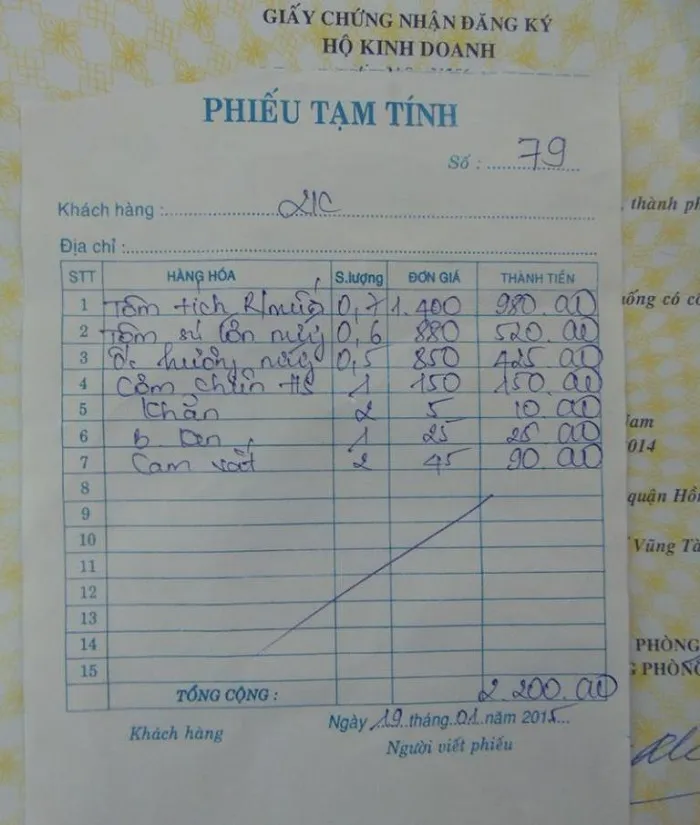 GIẤY CHỨNG NHẬN ĐĂNG KÝ
HỘ KINH DOANH
PHIẾU TẠM TÍNH
Số : 79
Khách hàng : 21C
, thành ph
Địa chỉ :
STT HÀNG HÓA S.lượng ĐƠN GIÁ THÀNH TIỀN
1 Tôm tích R/muối 0,7 1.400 980.000
2 Tôm sú lớn nướng 0,6 880 520.000
3 Ốc hương nướng 0,5 850 425.000
4 Cơm chiên HS 1 150 150.000
5 Khăn 2 5 10.000
6 b. ken 1 25 25.000
7 Cam vắt 2 45 90.000
8
9
10
11
12
13
14
15
uống có cồ
Nam
2014
quận Hồ
Vũng Tà
PHÒNG
PHÒNG
TỔNG CỘNG : 2.200.000
Ngày 19 tháng 01 năm 2015
Khách hàng Người viết phiếu